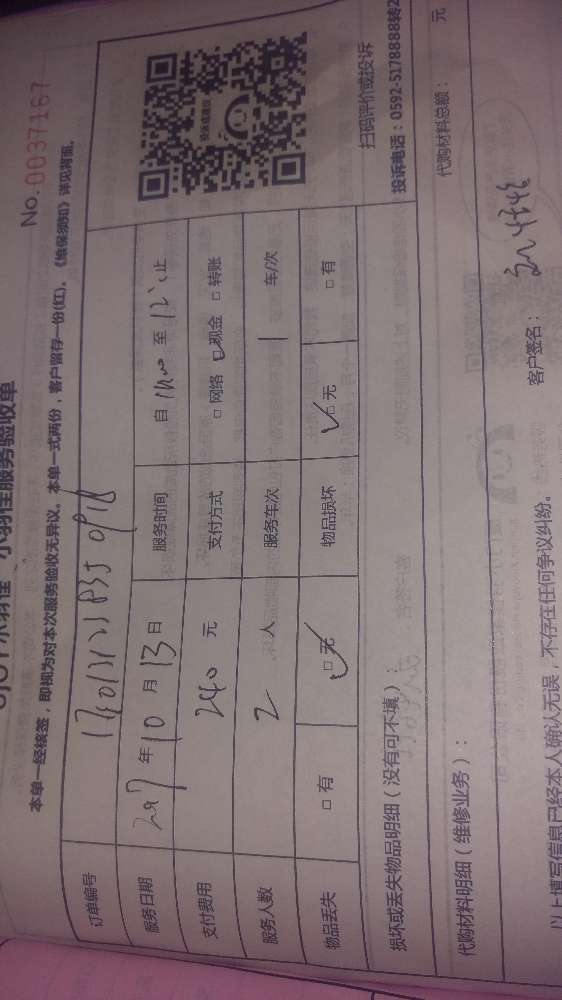 小羽佳服务验收单
No.0037167
本单一经核签，即视为对本次服务验收无异议。本单一式两份，客户留存一份(红)。《维保须知》详见背面。
订单编号
服务日期 2017 年 10 月 13 日 服务时间 自 至 止
支付费用 240 元 支付方式 □ 网络 □ 现金 □ 转账
服务人数 2 人 服务车次 1 车/次
物品丢失 □ 有 □ 无 物品损坏 □ 无 □ 有
投诉或建议
扫码评价或投诉
投诉电话：0592-5178888转2
损坏或丢失物品明细（没有可不填）：
代购材料明细（维修业务）： 代购材料总额： 元
以上填写信息已经本人确认无误，不存在任何争议纠纷。 客户签名：